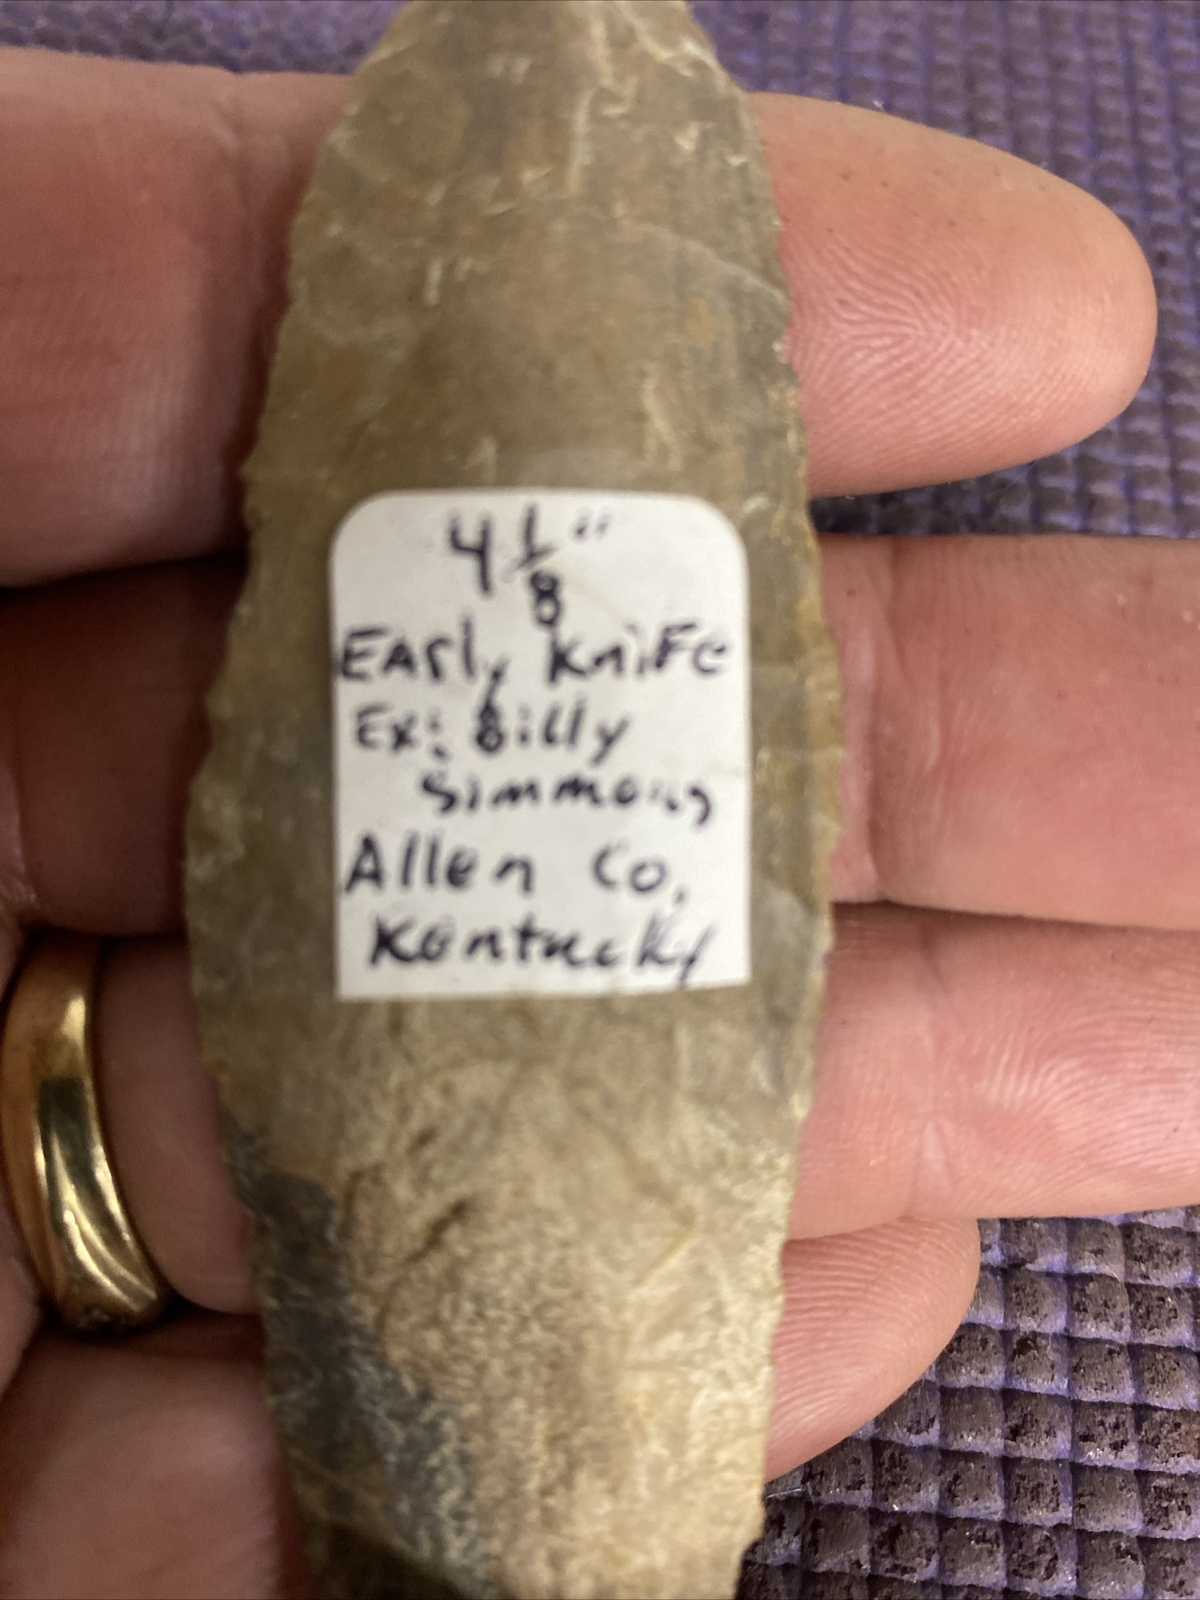 4 1/8"
Early Knife
Ex: Billy
Simmons
Allen Co.
Kentucky